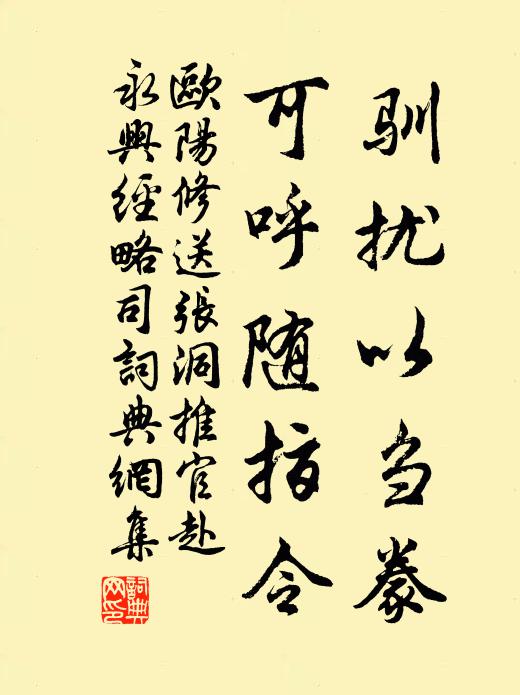 驯扰以刍豢
可呼随指令
歐陽修送張洞推官赴
永興經略司詞典網集
詞典网印